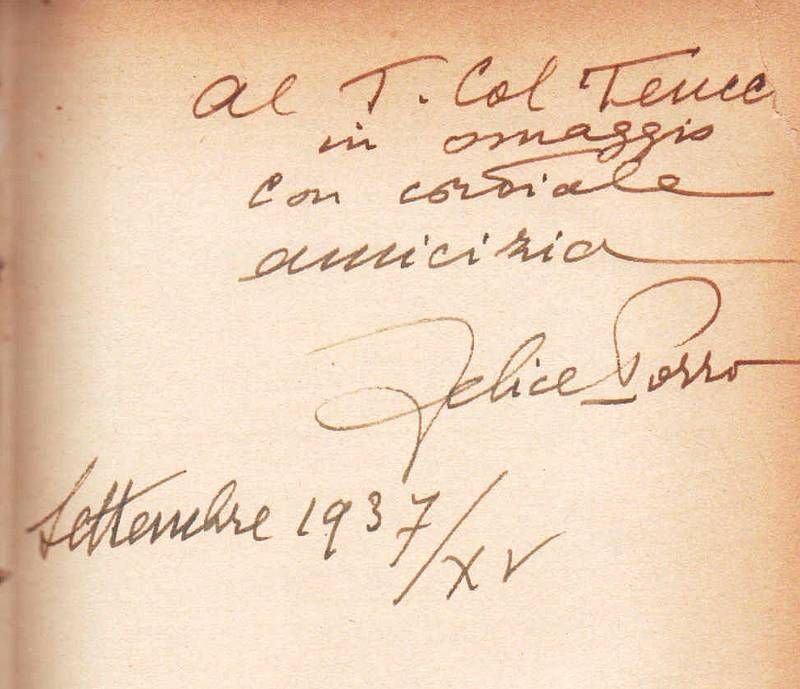 al T. Col Tenca
in omaggio
con cordiale
amicizia
Felice Porro
Settembre 1937/XV